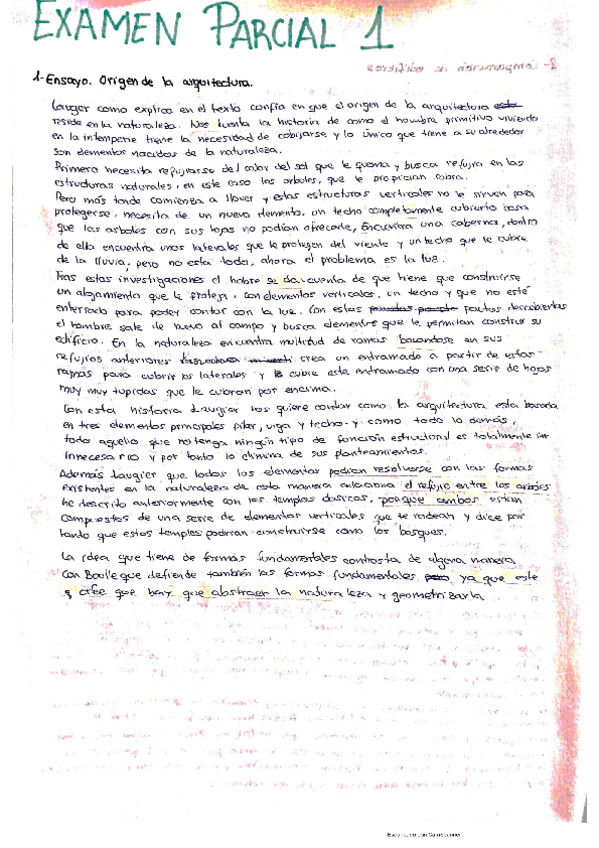 EXAMEN PARCIAL 1
1- Ensayo. Origen de la arquitectura.
Laugier como explica en el texto confia en que el origen de la arquitectura esta
reside en la naturaleza. Nos cuenta la historia de como el hombre primitivo viviendo
en la intemperie tiene la necesidad de cobijarse y lo único que tiene a su alrededor
son elementos nacidos de la naturaleza.
Primero necesita refugiarse del calor del sol que le quema y busca refugio en las
estructuras naturales, en este caso los arboles, que le propician sombra.
Pero más tarde comienza a llover y estas estructuras verticales no le sirven para
protegerse, necesita de un nuevo elemento, un techo completamente cubierto cosa
que los arboles con sus hojas no podian ofrecerle, encuentra una caberna, dentro
de ella encuentra unos laterales que le protegen del viento y un techo que le cubre
de la lluvia, pero no esta todo, ahora el problema es la luz.
Tras estas investigaciones el hobre se da cuenta de que tiene que construirse
un alojamiento que le proteja, con elementos verticales, un techo y que no esté
enterrado para poder contar con la luz. Con estas pautas descubiertas
el hombre sale de nuevo al campo y busca elementos que le permitan construir su
edificio. En la naturaleza encuentra multitud de ramas basandose en sus
refugios anteriores crea un entramado a partir de estas
ramas para cubrir los laterales y le cubre este entramado con una serie de hojas
muy muy tupidas que le cubran por encima.
Con esta historia Laugier nos quiere contar como la arquitectura esta basada
en tres elementos principales pilar, viga y techo y como todo lo demás,
todo aquello que no tenga ningún tipo de función estructural es totalmente
innecesario y por tanto lo elimina de sus planteamientos.
Además Laugier que todos los elementos podian resolverse con las formas
existentes en la naturaleza de esta manera relaciona el refugio entre los arboles
he descrito anteriormente con los templos clasicos, porque ambos estan
compuestos de una serie de elementos verticales que te rodean y dice por
tanto que estos templos podrian construirse como los bosques.
La idea que tiene de formas fundamentales contrasta de alguna manera
con Boulle que defiende también las formas fundamentales ya que este
cree que hay que abstraer la naturaleza y geometrizarla